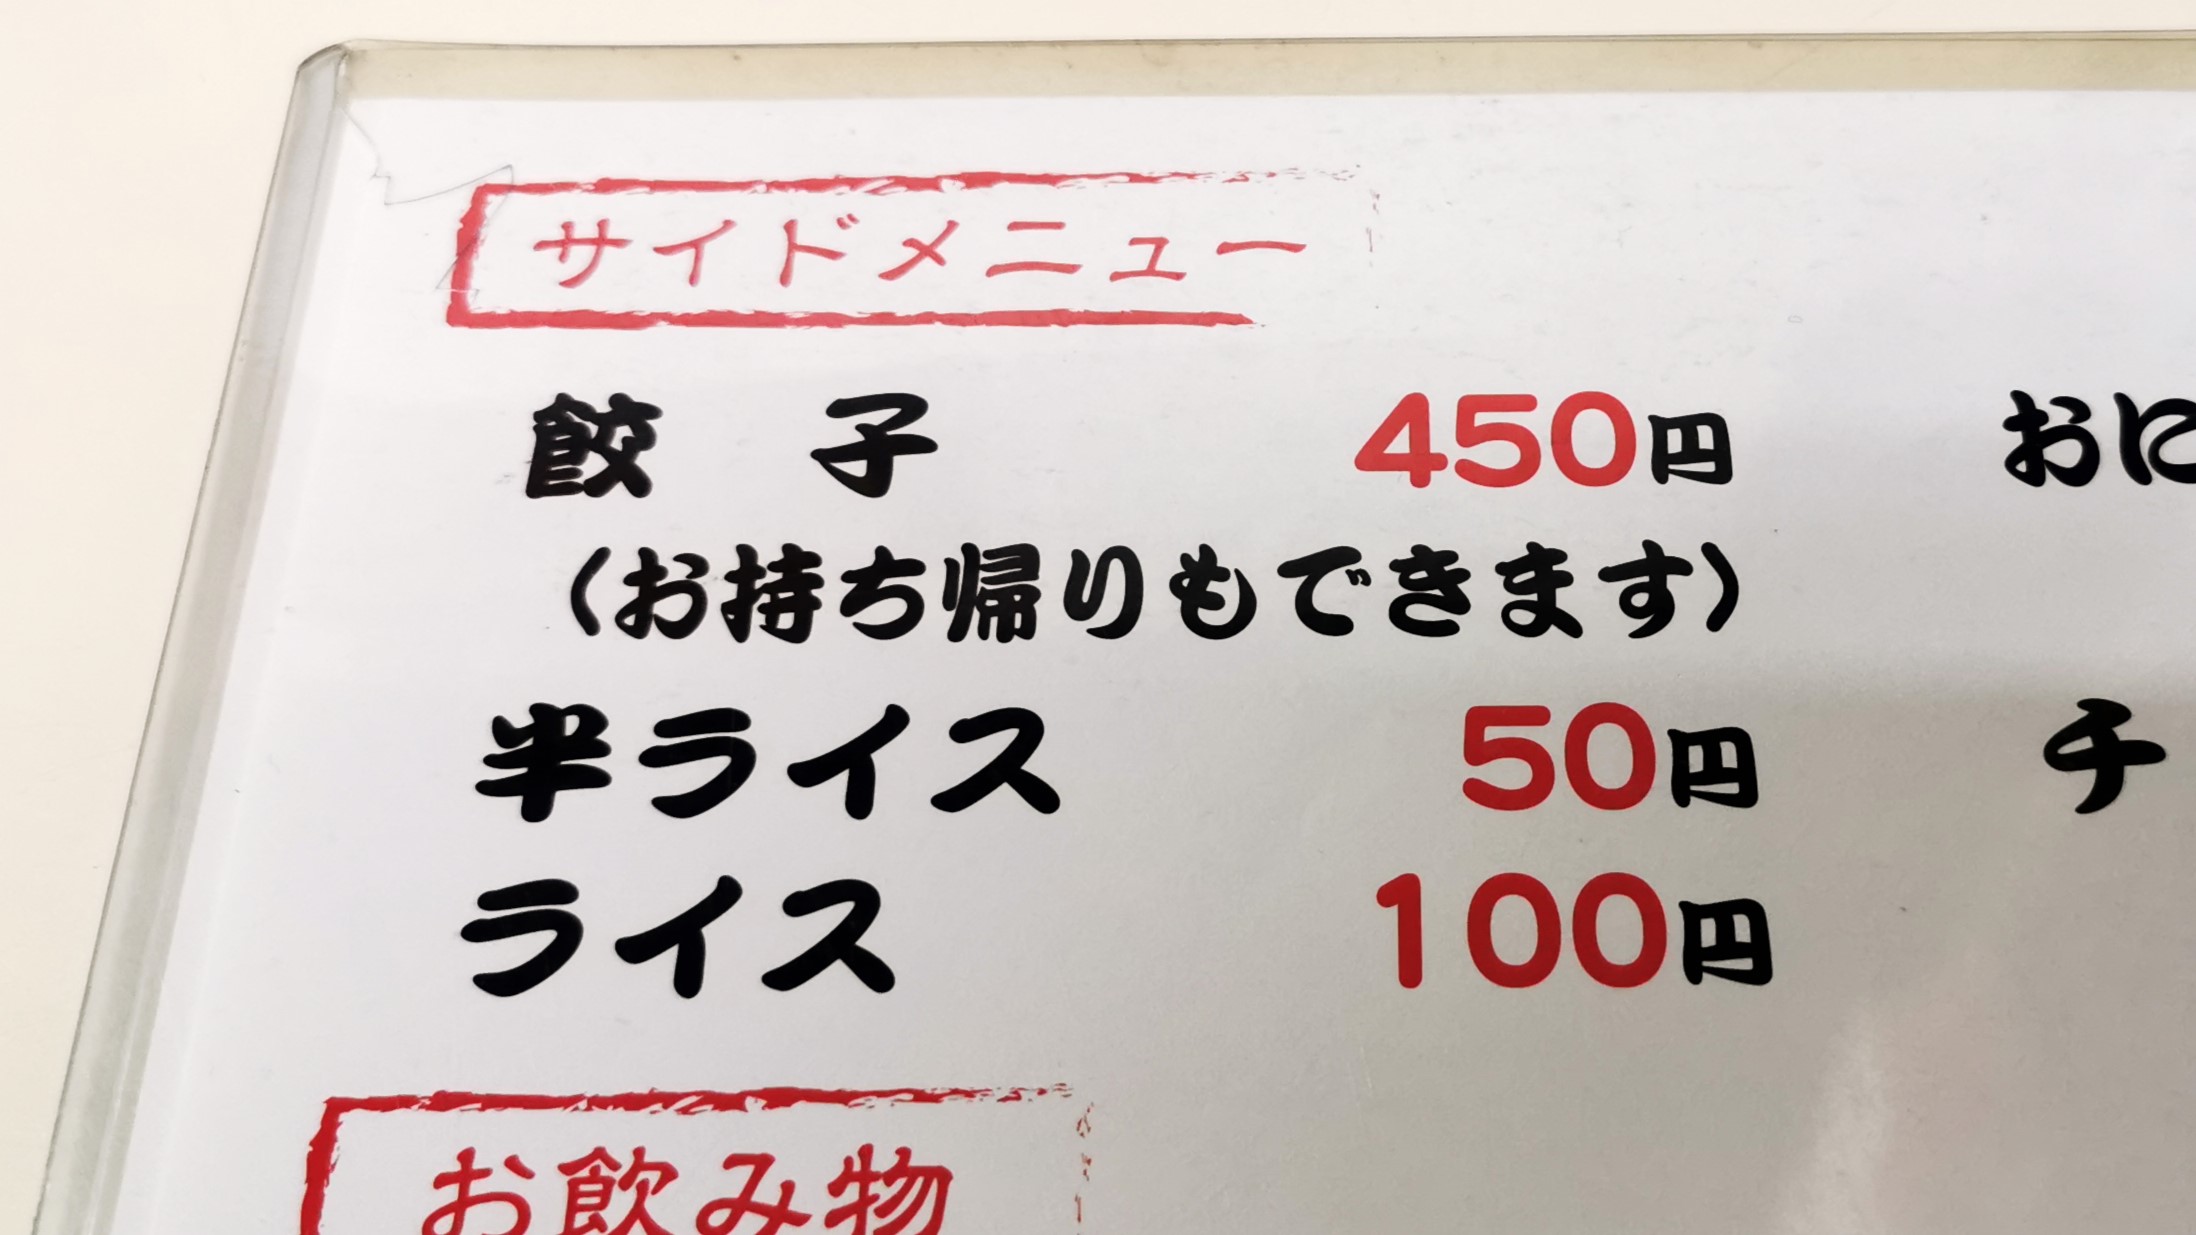 サイドメニュー
餃 子 450円 おに
(お持ち帰りもできます)
半ライス 50円 チ
ライス 100円
お飲み物